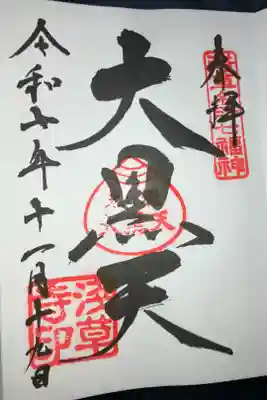 奉拝
浅草名所七福神
大黒天
令和七年十一月十九日
浅草
寺印